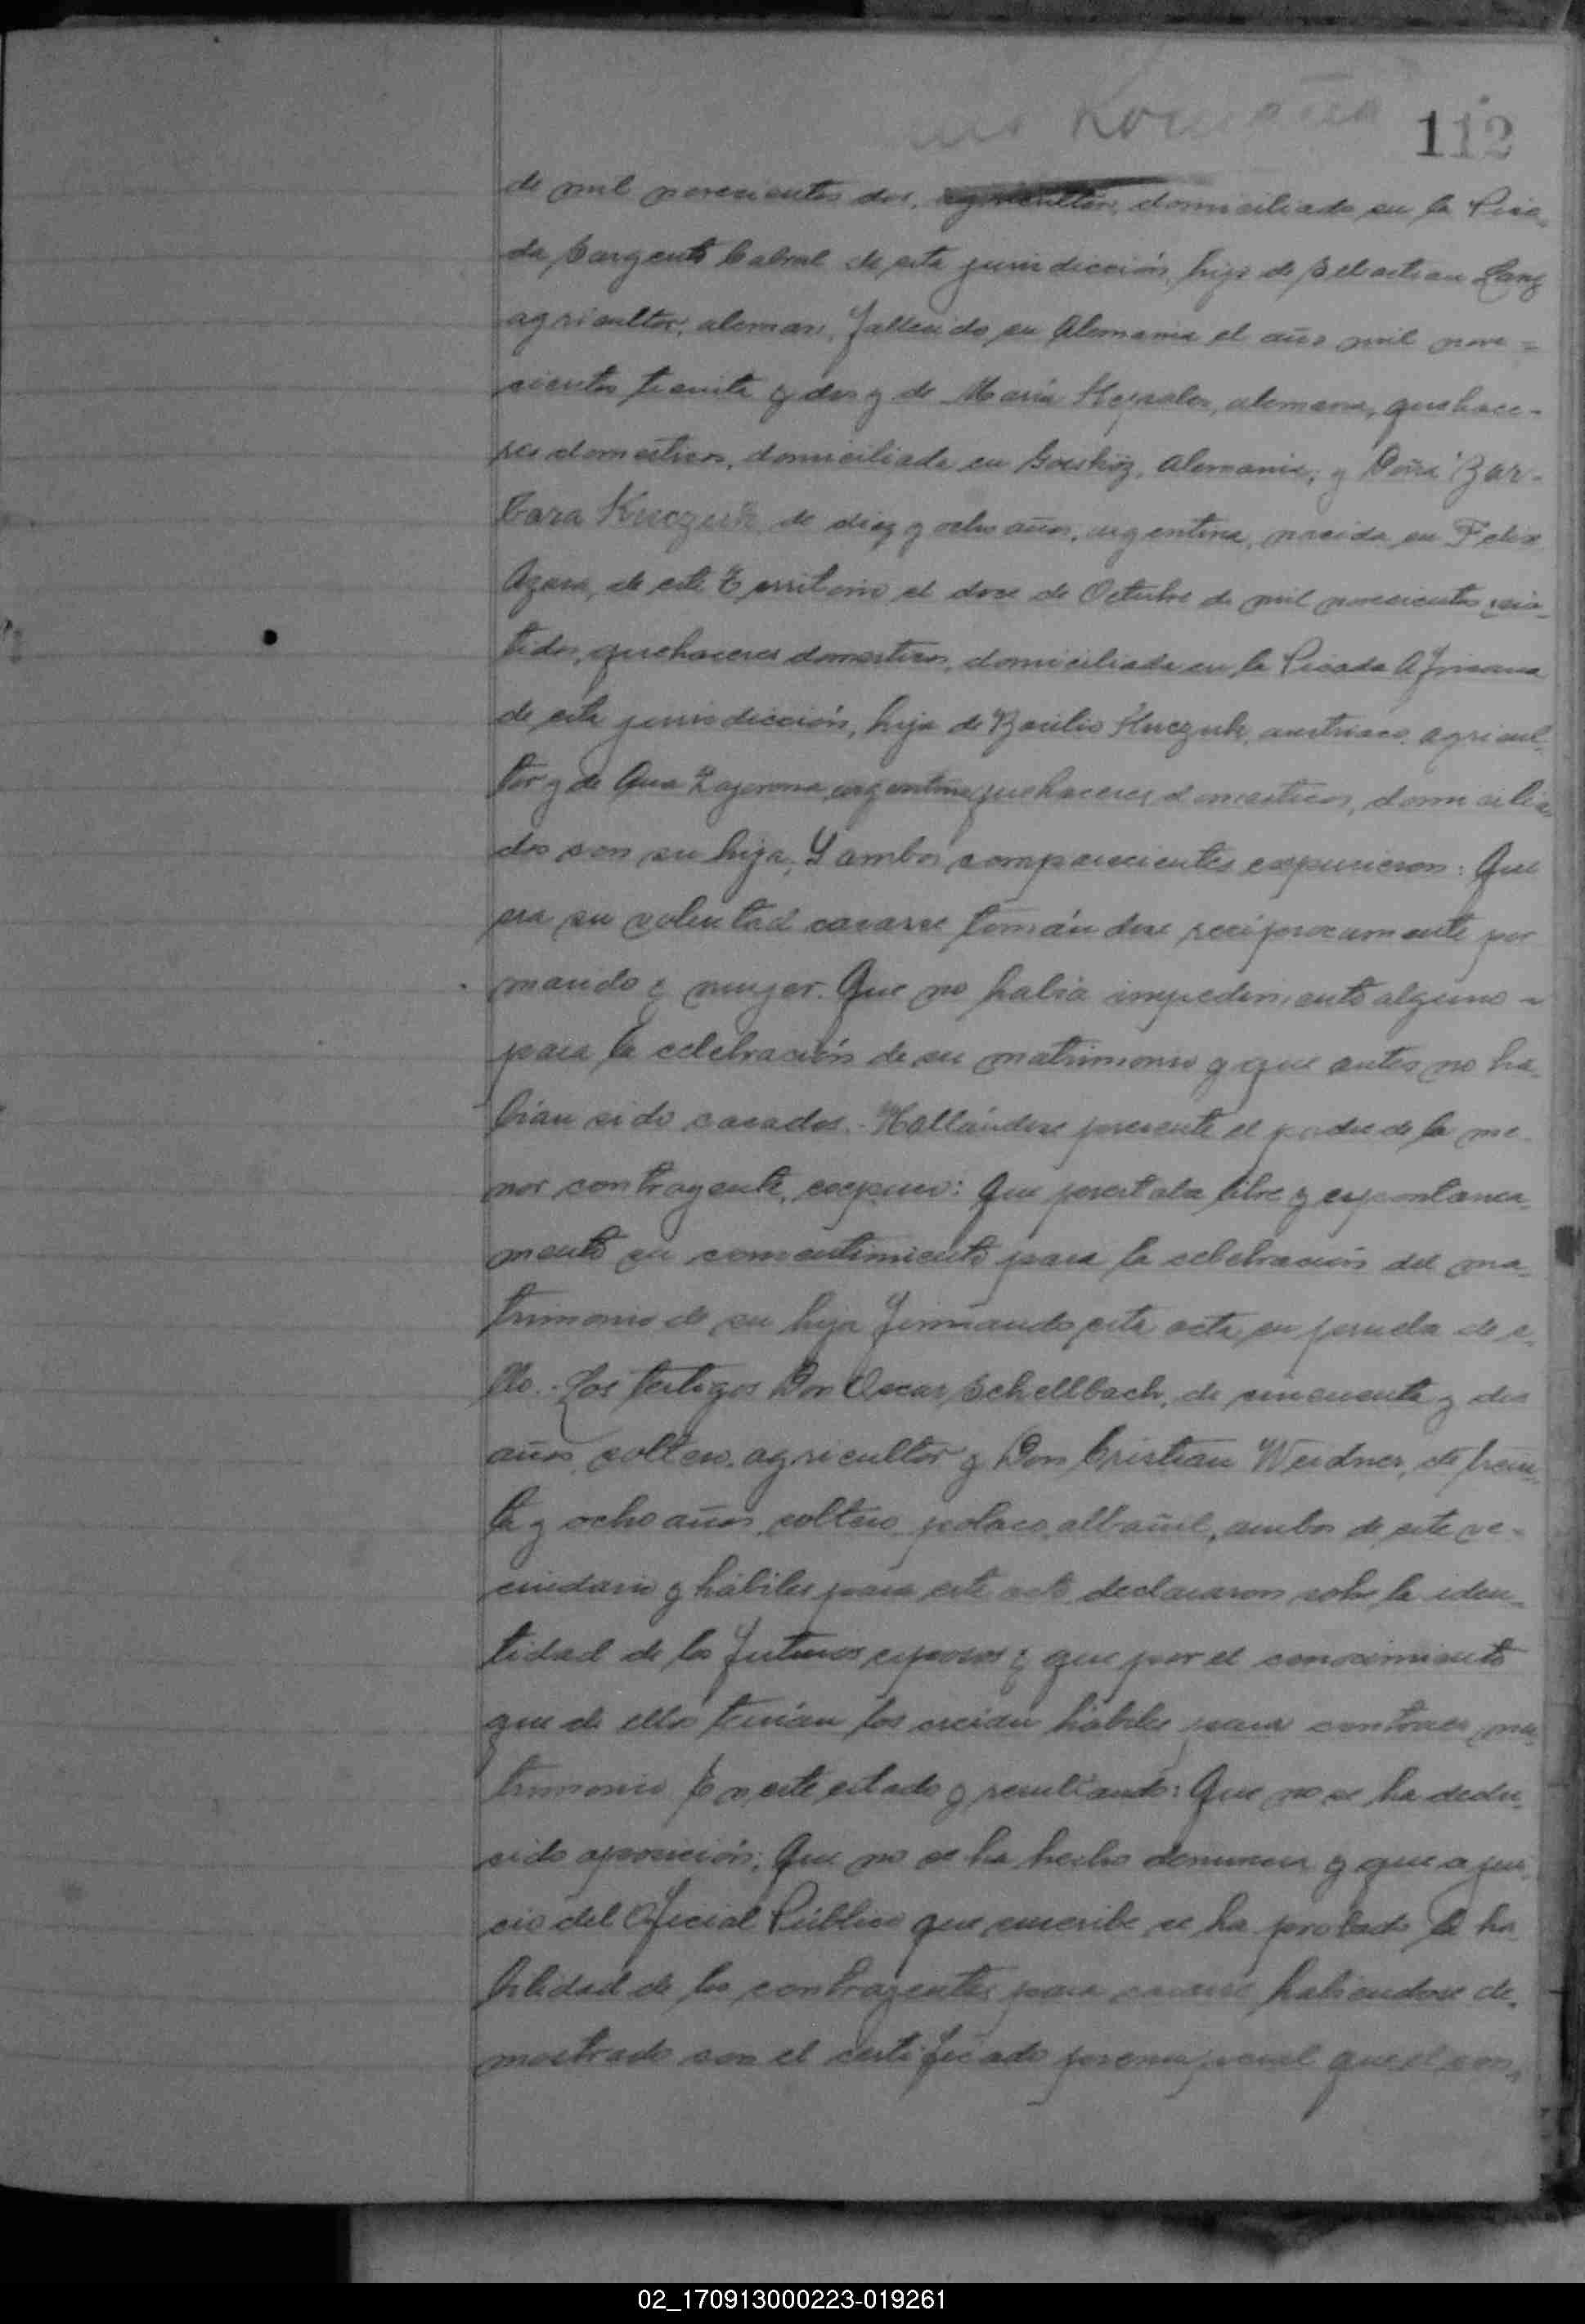 112
de mil novecientos dos, agricultor, domiciliado en la Pica_
da Sargento Cabral de esta jurisdicción, hijo de Sebastian Lang
agricultor, aleman, fallecido en Alemania el año mil nove=
cientos treinta y dos y de María Kessler, alemana, quehace-
res domesticos, domiciliada en Alemania; y Doña Bar-
bara Kuczuk de diez y ocho años, argentina, nacida en Felix
Azara, de este Territorio el doce de Octubre de mil novecientos vein_
tidos, quehaceres domesticos, domiciliada en la Picada Africana
de esta jurisdicción, hija de Basilio Kuczuk, austriaco, agricul_
tor y de Ana Zagorona, argentina, quehaceres domesticos, domicilia_
dos con su hija, Y ambos comparecientes expusieron: Que
era su voluntad casarse tomándose recíprocamente por
marido y mujer. Que no había impedimento alguno -
para la celebración de su matrimonio y que antes no ha_
bían sido casados. - Hallándose presente el padre de la me_
nor contrayente, expuso: Que prestaba libre y espontanea_
mente su consentimiento para la celebración del ma_
trimonio de su hija firmando esta acta en prueba de e_
llo. - Los testigos Don Oscar Schellbach, de cincuenta y dos
años, soltero, agricultor y Don Cristian Weidner, de trein_
ta y ocho años, soltero, polaco, albañil, ambos de este ve-
cindario y hábiles para este acto declararon sobre la iden_
tidad de los futuros esposos y que por el conocimiento
que de ellos tenían los creían hábiles para contraer ma_
trimonio En este estado y resultando: Que no se ha dedu_
cido oposición; Que no se ha hecho denuncia y que a jui_
cio del Oficial Público que suscribe se ha probado la ha_
bilidad de los contrayentes para casarse, habiendose de_
mostrado con el certificado prenupcial que el con_
02_170913000223-019261